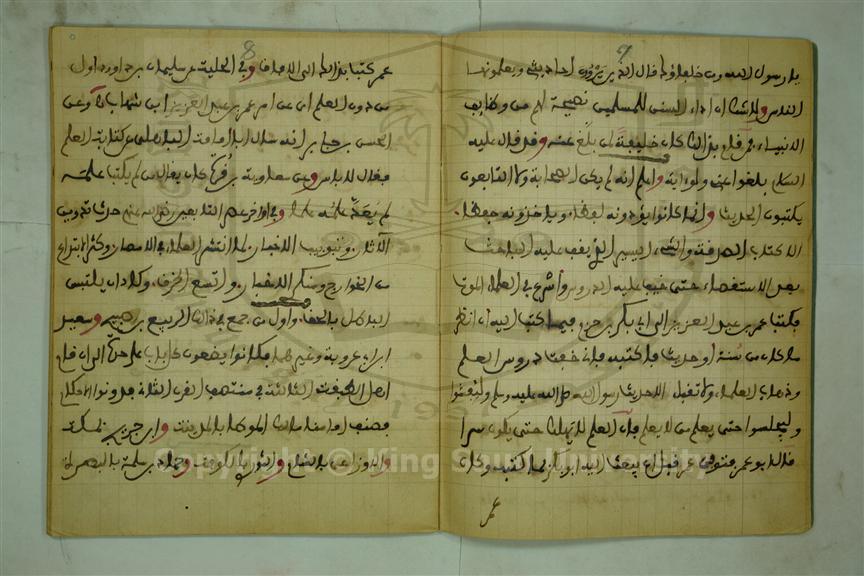 يا رسول الله ومن خلفاؤك قال الذين يروون أحاديثي ويعلمونها
الناس ولا شك أن أداء السنن للمسلمين نصيحة لهم من وظائف
الأنبياء فمن قام بذلك كان خليفة لمن بلغ عنه وقد قال عليه
السلام بلغوا عني ولو آية واعلم أنه لم يكن الصحابة ولا التابعون
يكتبون الحديث وإنما كانوا يؤدونه لفظا ويأخذونه حفظا
إلا كتاب الصدقة والشيء اليسير الذي يقف عليه الباحث
بعد الاستقصاء حتى خيف عليه الدروس وأسرع في العلماء الموت
فكتب عمر بن عبد العزيز إلى أبي بكر بن حزم فيما كتب إليه أن انظر
ما كان من سنة أو حديث فاكتبه فإني خفت دروس العلم
وذهاب العلماء ولا تقبل إلا حديث رسول الله صلى الله عليه وسلم وليفشوا
وليجلسوا حتى يعلم من لا يعلم فإن العلم لا يهلك حتى يكون سرا
قال أبو عمر فتوفي عمر قبل أن يبعث إليه أبو بكر بما كتبه وكان
عمر
8
عمر كتب بذلك إلى الآفاق وفي الحلية عن سليمان بن داود أول
من دون العلم أي عن أمر عمر بن عبد العزيز ابن شهاب وعن
الحسن بن جابر أنه سأل أبا أمامة الباهلي عن كتابة العلم
فقال لا بأس وعن معاوية بن قرة كان يقال من لم يكتب علمه
لم يعد علمه علما وفي أواخر عصر التابعين رضي الله عنهم حدث تدوين
الآثار وتبويب الأخبار لما انتشر العلماء في الأمصار وكثر الابتداع
من الخوارج ومنكر الأقدار واتسع الخرق وكاد أن يلتبس
الباطل بالحق وأول من جمع في ذلك الربيع بن صبيح وسعيد
ابن أبي عروبة وغيرهما فكانوا يضعون كل باب على حدة إلى أن قام
أهل الطبقة الثالثة في منتصف القرن الثاني فدونوا الأحكام
فصنف إمامنا مالك الموطأ بالمدينة وابن جريج بمكة
والأوزاعي بالشام والثوري بالكوفة وحماد بن سلمة بالبصرة
Copyright © King Saud University